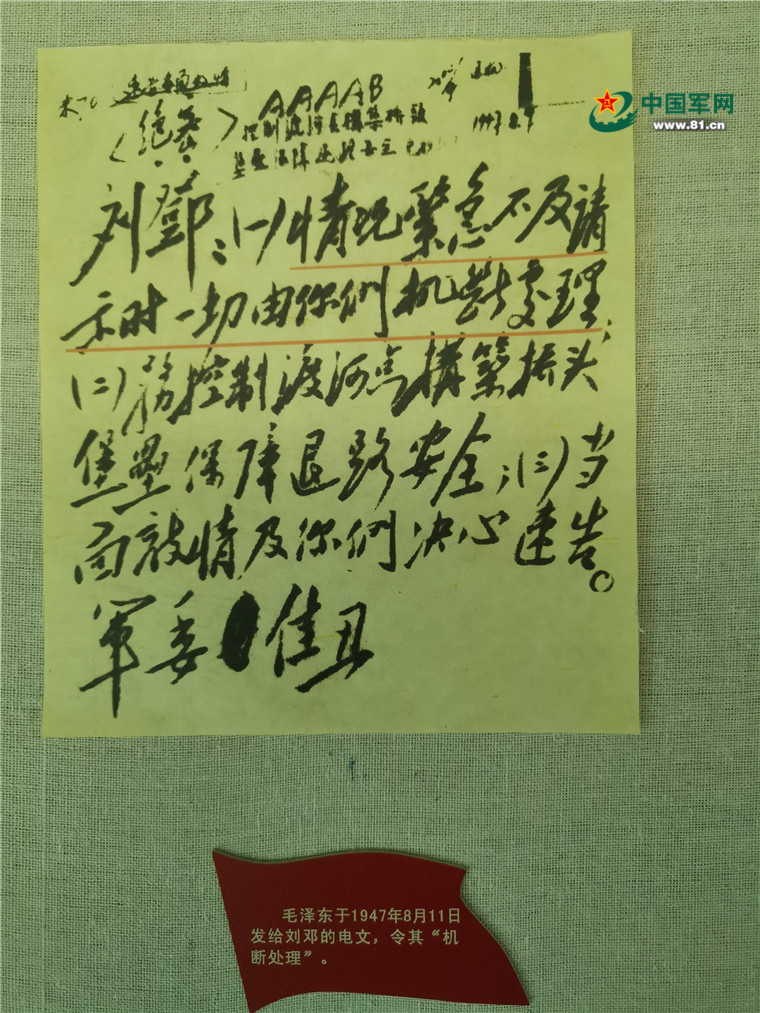 中国军网
www.81.cn
AAAAB
〈绝密〉
1947.8.9
刘鄧：(一)情况緊急不及請
示时一切由你们机断处理；
(二)務控制渡河点構築桥头
堡壘保障退路安全；(三)当
面敌情及你们决心速告。
军委 佳丑
毛泽东于1947年8月11日
发给刘邓的电文，令其“机
断处理”。